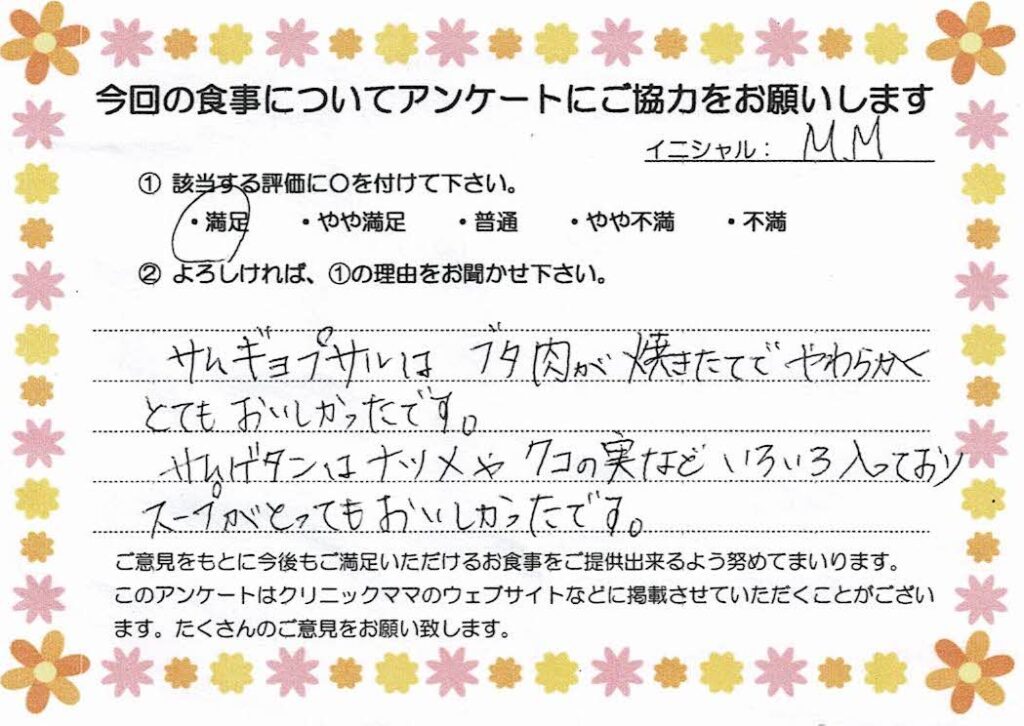 今回の食事についてアンケートにご協力をお願いします
イニシャル： M.M
① 該当する評価に〇を付けて下さい。
・満足 ・やや満足 ・普通 ・やや不満 ・不満
② よろしければ、①の理由をお聞かせ下さい。
サムギョプサルは ブタ肉が 焼きたてで やわらかく
とても おいしかったです。
サムゲタンは ナツメや クコの実など いろいろ 入っており
スープがとってもおいしかったです。
ご意見をもとに今後もご満足いただけるお食事をご提供出来るよう努めてまいります。
このアンケートはクリニックママのウェブサイトなどに掲載させていただくことがござい
ます。たくさんのご意見をお願い致します。